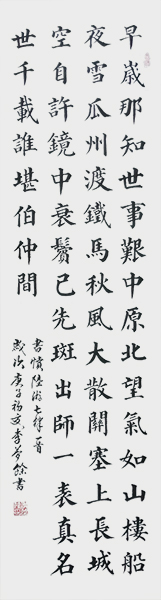 早歲那知世事艱中原北望氣如山樓船
夜雪瓜州渡鐵馬秋風大散關塞上長城
空自許鏡中衰鬢已先斑出師一表真名
世千載誰堪伯仲間
書憤陸游七律一首
歲次庚子初夏李書